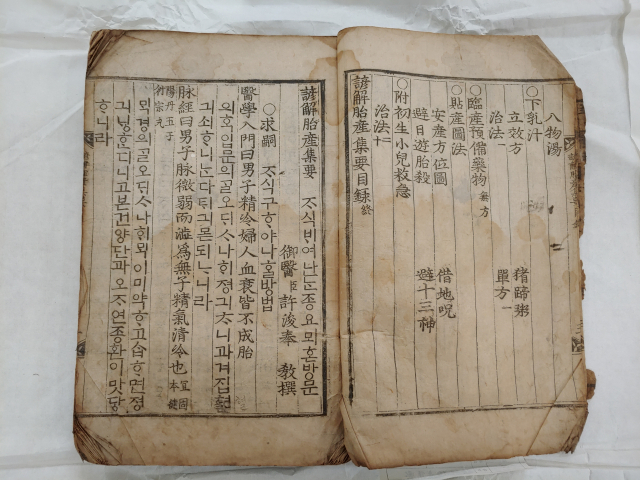 八物湯
○下乳汁
立效方 猪蹄粥
治法一 單方一
○臨産預備藥物 無方
○貼産圖法
安産方位圖 借地呪
避日遊胎殺 避十三神
○附初生小兒救急
治法十二
諺解胎産集要目録終
諺解胎産集要 ᄌᆞ식 ᄇᆡ여 난ᄂᆞᆫ 종요모ᄒᆞᆫ 방문
御醫臣許浚奉 教撰
○求嗣 ᄌᆞ식 구ᄒᆞ야 나ᄒᆞᆯ 방법
醫學入門曰男子精冷婦人血衰皆不成胎
의ᄒᆞᆨ입문의 ᄀᆞᆯ오ᄃᆡ ᄉᆞ나ᄒᆡ 졍긔 ᄎᆞ니과 겨집 혈
긔 쇠ᄒᆞ니ᄂᆞᆫ 다 ᄐᆡ긔 몯 되ᄂᆞ니라
脉經曰男子脉微弱而澁爲無子精氣清冷也宜固本健
陽丹五子衍宗丸
ᄆᆡᆨ경의 ᄀᆞᆯ오ᄃᆡ ᄉᆞ나ᄒᆡ ᄆᆡᆨ이 미약ᄒᆞ고 습ᄒᆞ면 졍
긔 닝ᄒᆞ디니 고본건양단과 오ᄌᆞ연종환이 맛당
ᄒᆞ니라